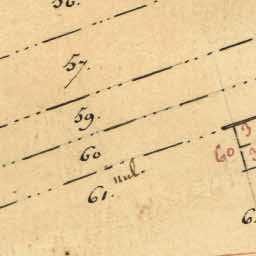 56.
57.
59.
60
nul.
61.
60